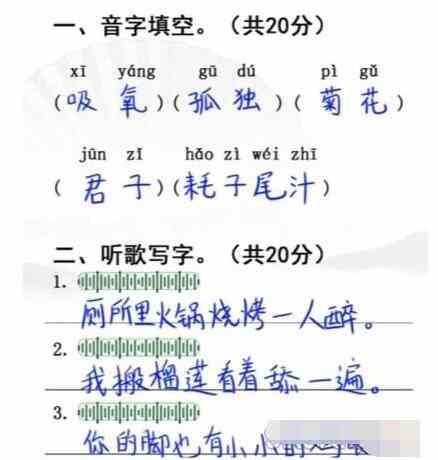 一、音字填空。（共20分）
xī yáng gū dú pì gǔ
(吸 氧)(孤 独)(菊 花)
jūn zǐ hǎo zì wéi zhī
(君 子)(耗子尾汁)
二、听歌写字。（共20分）
1.
厕所里火锅烧烤一人醉。
2.
我搬榴莲看着舔一遍。
3.
你的脚也有小小的